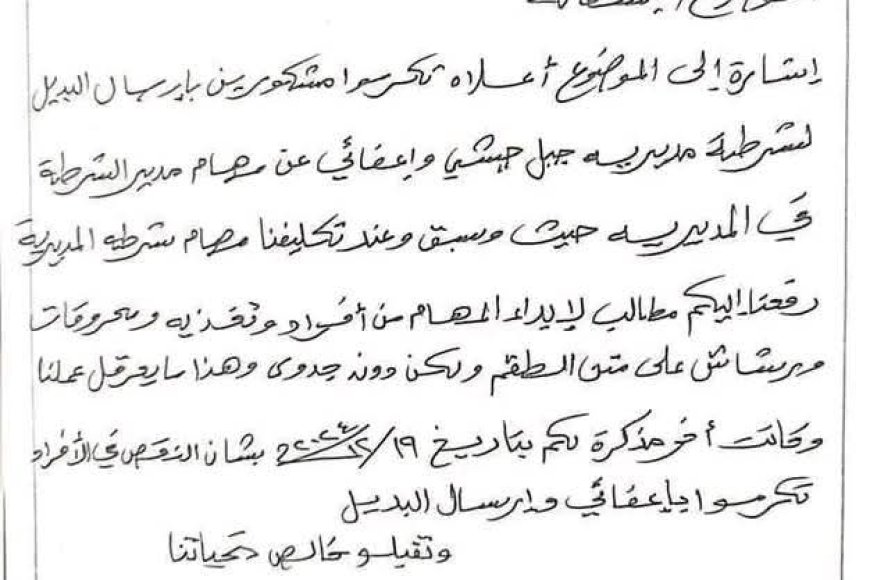 إشارة إلى الموضوع أعلاه تكرموا مشكورين بإرسال البديل
لشرطة مديريه جبل حبشي وإعفائي عن مهام مدير الشرطة
في المديريه حيث وسبق وعند تكليفنا مهام شرطه المديرية
رفعنا إليكم مطالب لإيداء المهام من أفراد وتغذيه ومحروقات
ورشاش على متن الطقم ولكن دونه جدوى وهذا ما يعرقل عملنا
وكانت أخر مذكرة لكم بتاريخ ١٩/١٢/٢٠٢٤ بشان النقص في الأفراد
تكرموا بإعفائي وإرسال البديل
وتقبلو خالص تحياتنا